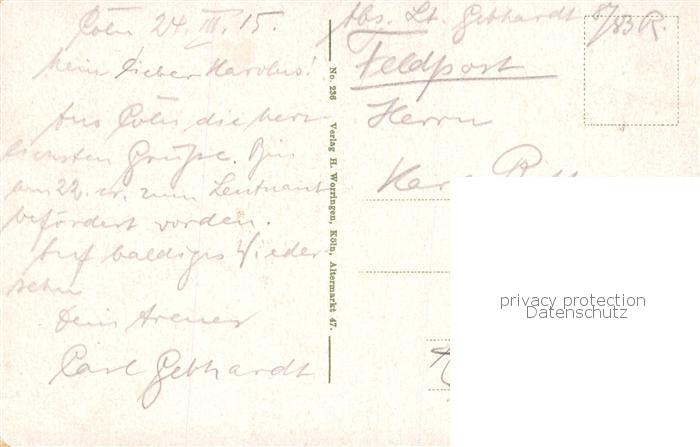 Cöln 24. III. 15.
Mein lieber Karolus!
Aus Cöln die herz-
lichsten Grüße. Bin
am 22. zum Leutnant
befördert worden.
Auf baldiges Wieder-
sehn
Dein
Carl Gebhardt
No. 236 Verlag H. Worringen, Köln, Altermarkt 47.
Abs. Lt. Gebhardt 8/83 R.
Feldpost
Herrn
privacy protection
Datenschutz